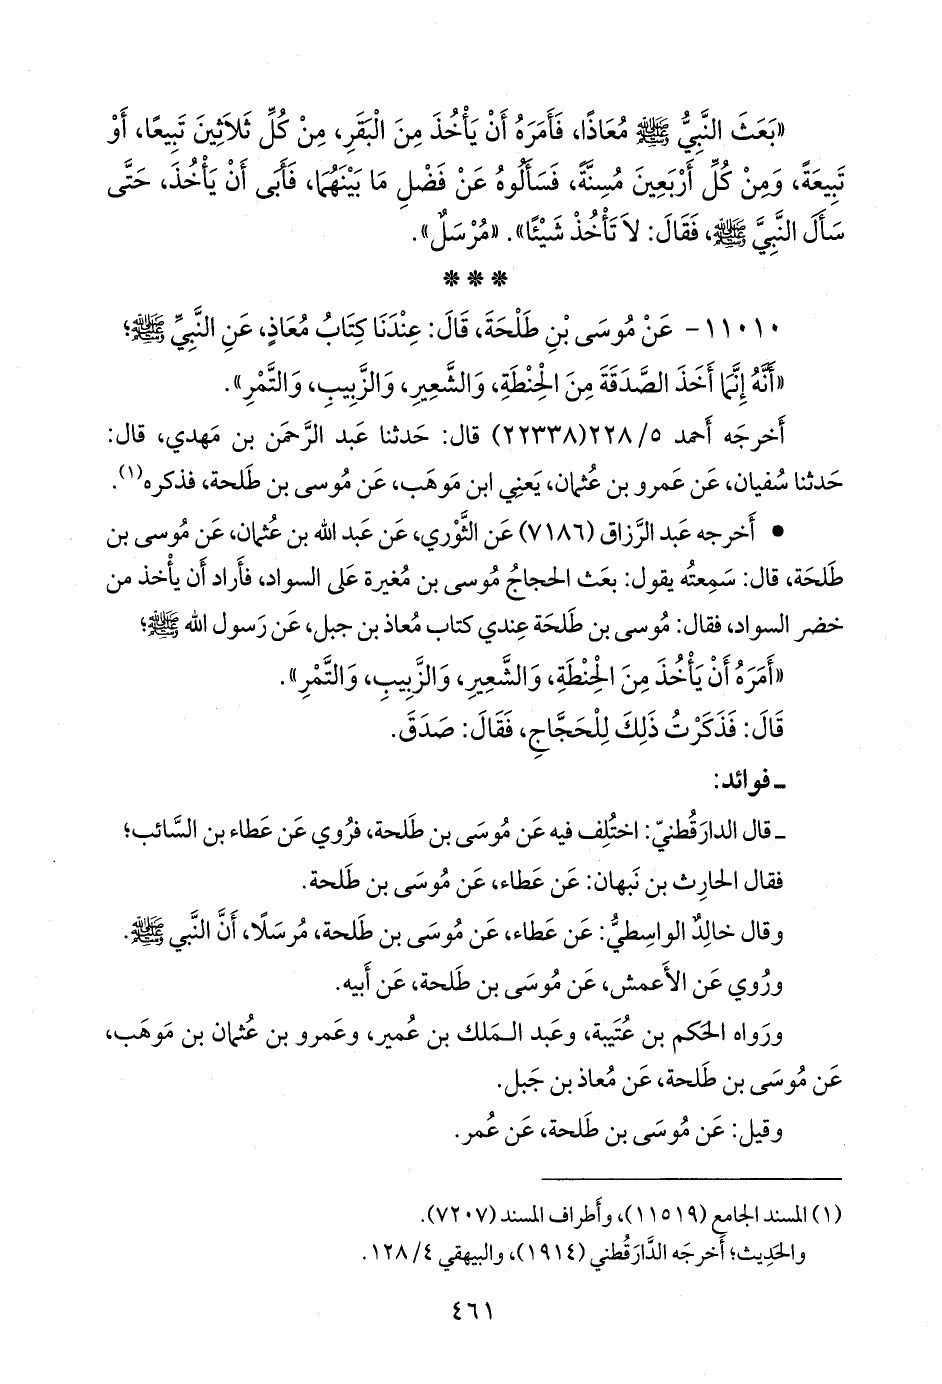 «بَعَثَ النَّبِيُّ ﷺ مُعَاذًا، فَأَمَرَهُ أَنْ يَأْخُذَ مِنَ الْبَقَرِ، مِنْ كُلِّ ثَلاَثِينَ تَبِيعًا، أَوْ
تَبِيعَةً، وَمِنْ كُلِّ أَرْبَعِينَ مُسِنَّةً، فَسَأَلُوهُ عَنْ فَضْلِ مَا بَيْنَهُمَا، فَأَبَى أَنْ يَأْخُذَ، حَتَّى
سَأَلَ النَّبِيَّ ﷺ، فَقَالَ: لاَ تَأْخُذْ شَيْئًا». «مُرْسَلٌ».
* * *
١١٠١٠- عَنْ مُوسَى بْنِ طَلْحَةَ، قَالَ: عِنْدَنَا كِتَابُ مُعَاذٍ، عَنِ النَّبِيِّ ﷺ؛
«أَنَّهُ إِنَّمَا أَخَذَ الصَّدَقَةَ مِنَ الْحِنْطَةِ، وَالشَّعِيرِ، وَالزَّبِيبِ، وَالتَّمْرِ».
أَخرجَه أَحمد ٥/ ٢٢٨(٢٢٣٣٨) قال: حَدثنا عَبد الرَّحمَن بن مَهدي، قال:
حَدثنا سُفيان، عَن عَمرو بن عُثمان، يَعنِي ابن مَوهَب، عَن مُوسى بن طَلحة، فذكره(١).
• أَخرجه عَبد الرَّزاق (٧١٨٦) عَن الثَّوْري، عَن عَبد الله بن عُثمان، عَن مُوسى بن
طَلحَة، قال: سَمِعتُه يقول: بعَث الحجاجُ مُوسى بن مُغيرة عَلى السواد، فأَراد أَن يأْخذ من
خضر السواد، فقال: مُوسى بن طَلحَة عِندي كتاب مُعاذ بن جبل، عَن رَسول الله ﷺ؛
«أَمَرَهُ أَنْ يَأْخُذَ مِنَ الْحِنْطَةِ، وَالشَّعِيرِ، وَالزَّبِيبِ، وَالتَّمْرِ».
قَالَ: فَذَكَرْتُ ذَلِكَ لِلْحَجَّاجِ، فَقَالَ: صَدَقَ.
ـ فوائد:
ـ قال الدارَقُطنيّ: اختُلِف فيه عَن مُوسَى بن طَلحة، فرُوي عَن عَطاء بن السَّائب؛
فقال الحارِث بن نَبهان: عَن عَطاء، عَن مُوسَى بن طَلحة.
وقال خالِدٌ الواسِطيُّ: عَن عَطاء، عَن مُوسَى بن طَلحة، مُرسَلًا، أَنَّ النَّبي ﷺ.
ورُوي عَن الأَعمش، عَن مُوسَى بن طَلحة، عَن أَبيه.
ورَواه الحَكم بن عُتَيبة، وعَبد المَلك بن عُمير، وعَمرو بن عُثمان بن مَوهَب،
عَن مُوسَى بن طَلحة، عَن مُعاذ بن جَبل.
وقيل: عَن مُوسَى بن طَلحة، عَن عُمر.
(١) المسند الجامع (١١٥١٩)، وأَطراف المسند (٧٢٠٧).
والحَدِيث؛ أَخرجَه الدَّارَقُطني (١٩١٤)، والبيهقي ٤/ ١٢٨.
٤٦١